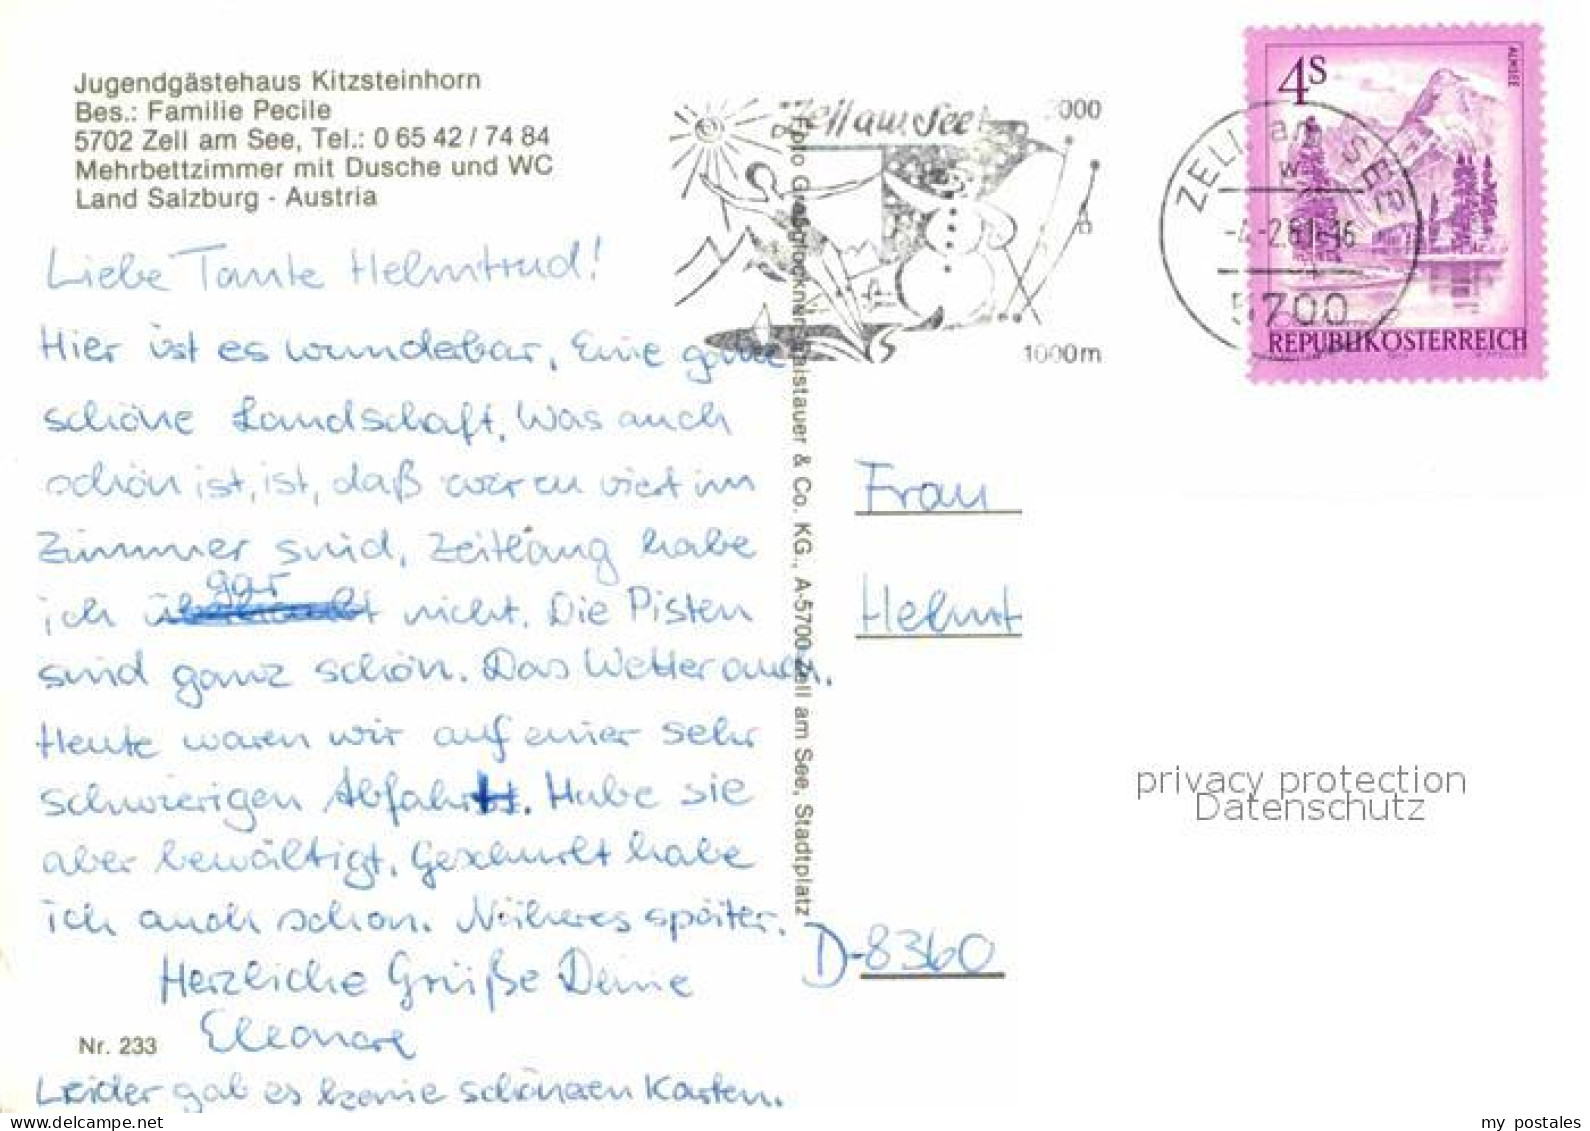 Jugendgästehaus Kitzsteinhorn
Bes.: Familie Pecile
5702 Zell am See, Tel.: 0 65 42 / 74 84
Mehrbettzimmer mit Dusche und WC
Land Salzburg - Austria
Liebe Tante Helmtrud!
Hier ist es wunderbar, Eine ganz
schöne Landschaft. Was auch
schön ist, ist, daß wir zu viert im
Zimmer sind, Zeitlang habe
ich gar nicht. Die Pisten
sind ganz schön. Das Wetter auch.
Heute waren wir auf einer sehr
schwierigen Abfahrt. Habe sie
aber bewältigt. Geschnult habe
ich auch schon. Näheres später.
Herzliche Grüße Deine
Eleonore
Nr. 233
Leider gab es keine schöneren Karten.
Foto Großglockner Baistauer & Co. KG., A-5700 Zell am See, Stadtplatz
Zell am See
2000
1000 m
ZELL am SEE
5700
4S
ALMSEE
REPUBLIK ÖSTERREICH
Frau
Helmt
D-8360
privacy protection
Datenschutz
my postales